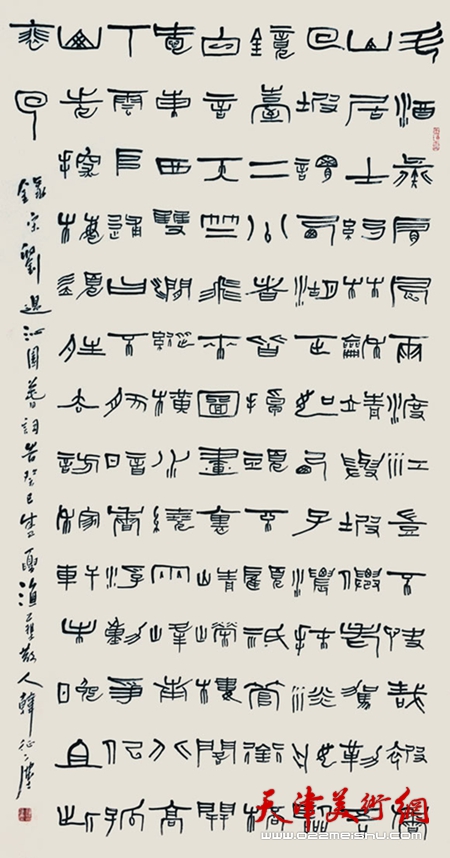 斗酒彘肩風雨渡江豈不快哉被香
山居士約林和靖與坡仙老駕勒吾
回坡謂西湖正如西子濃抹淡妝臨
鏡臺二公者皆掉頭不顧只管銜杯
白言天竺飛來圖畫裏崢嶸樓閣開
愛東西雙澗縱橫水繞兩峰南北高
下雲堆逋曰不然暗香浮動爭似孤
山先探梅須晴去訪稼軒未晚且此
徘徊
錄宋劉過沁園春詞癸巳散人韓征塵
天津美術網
www.022meishu.com